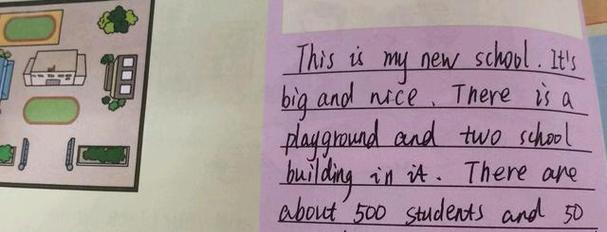 This is my new school. It's
big and nice. There is a
playground and two school
building in it. There are
about 500 students and 50